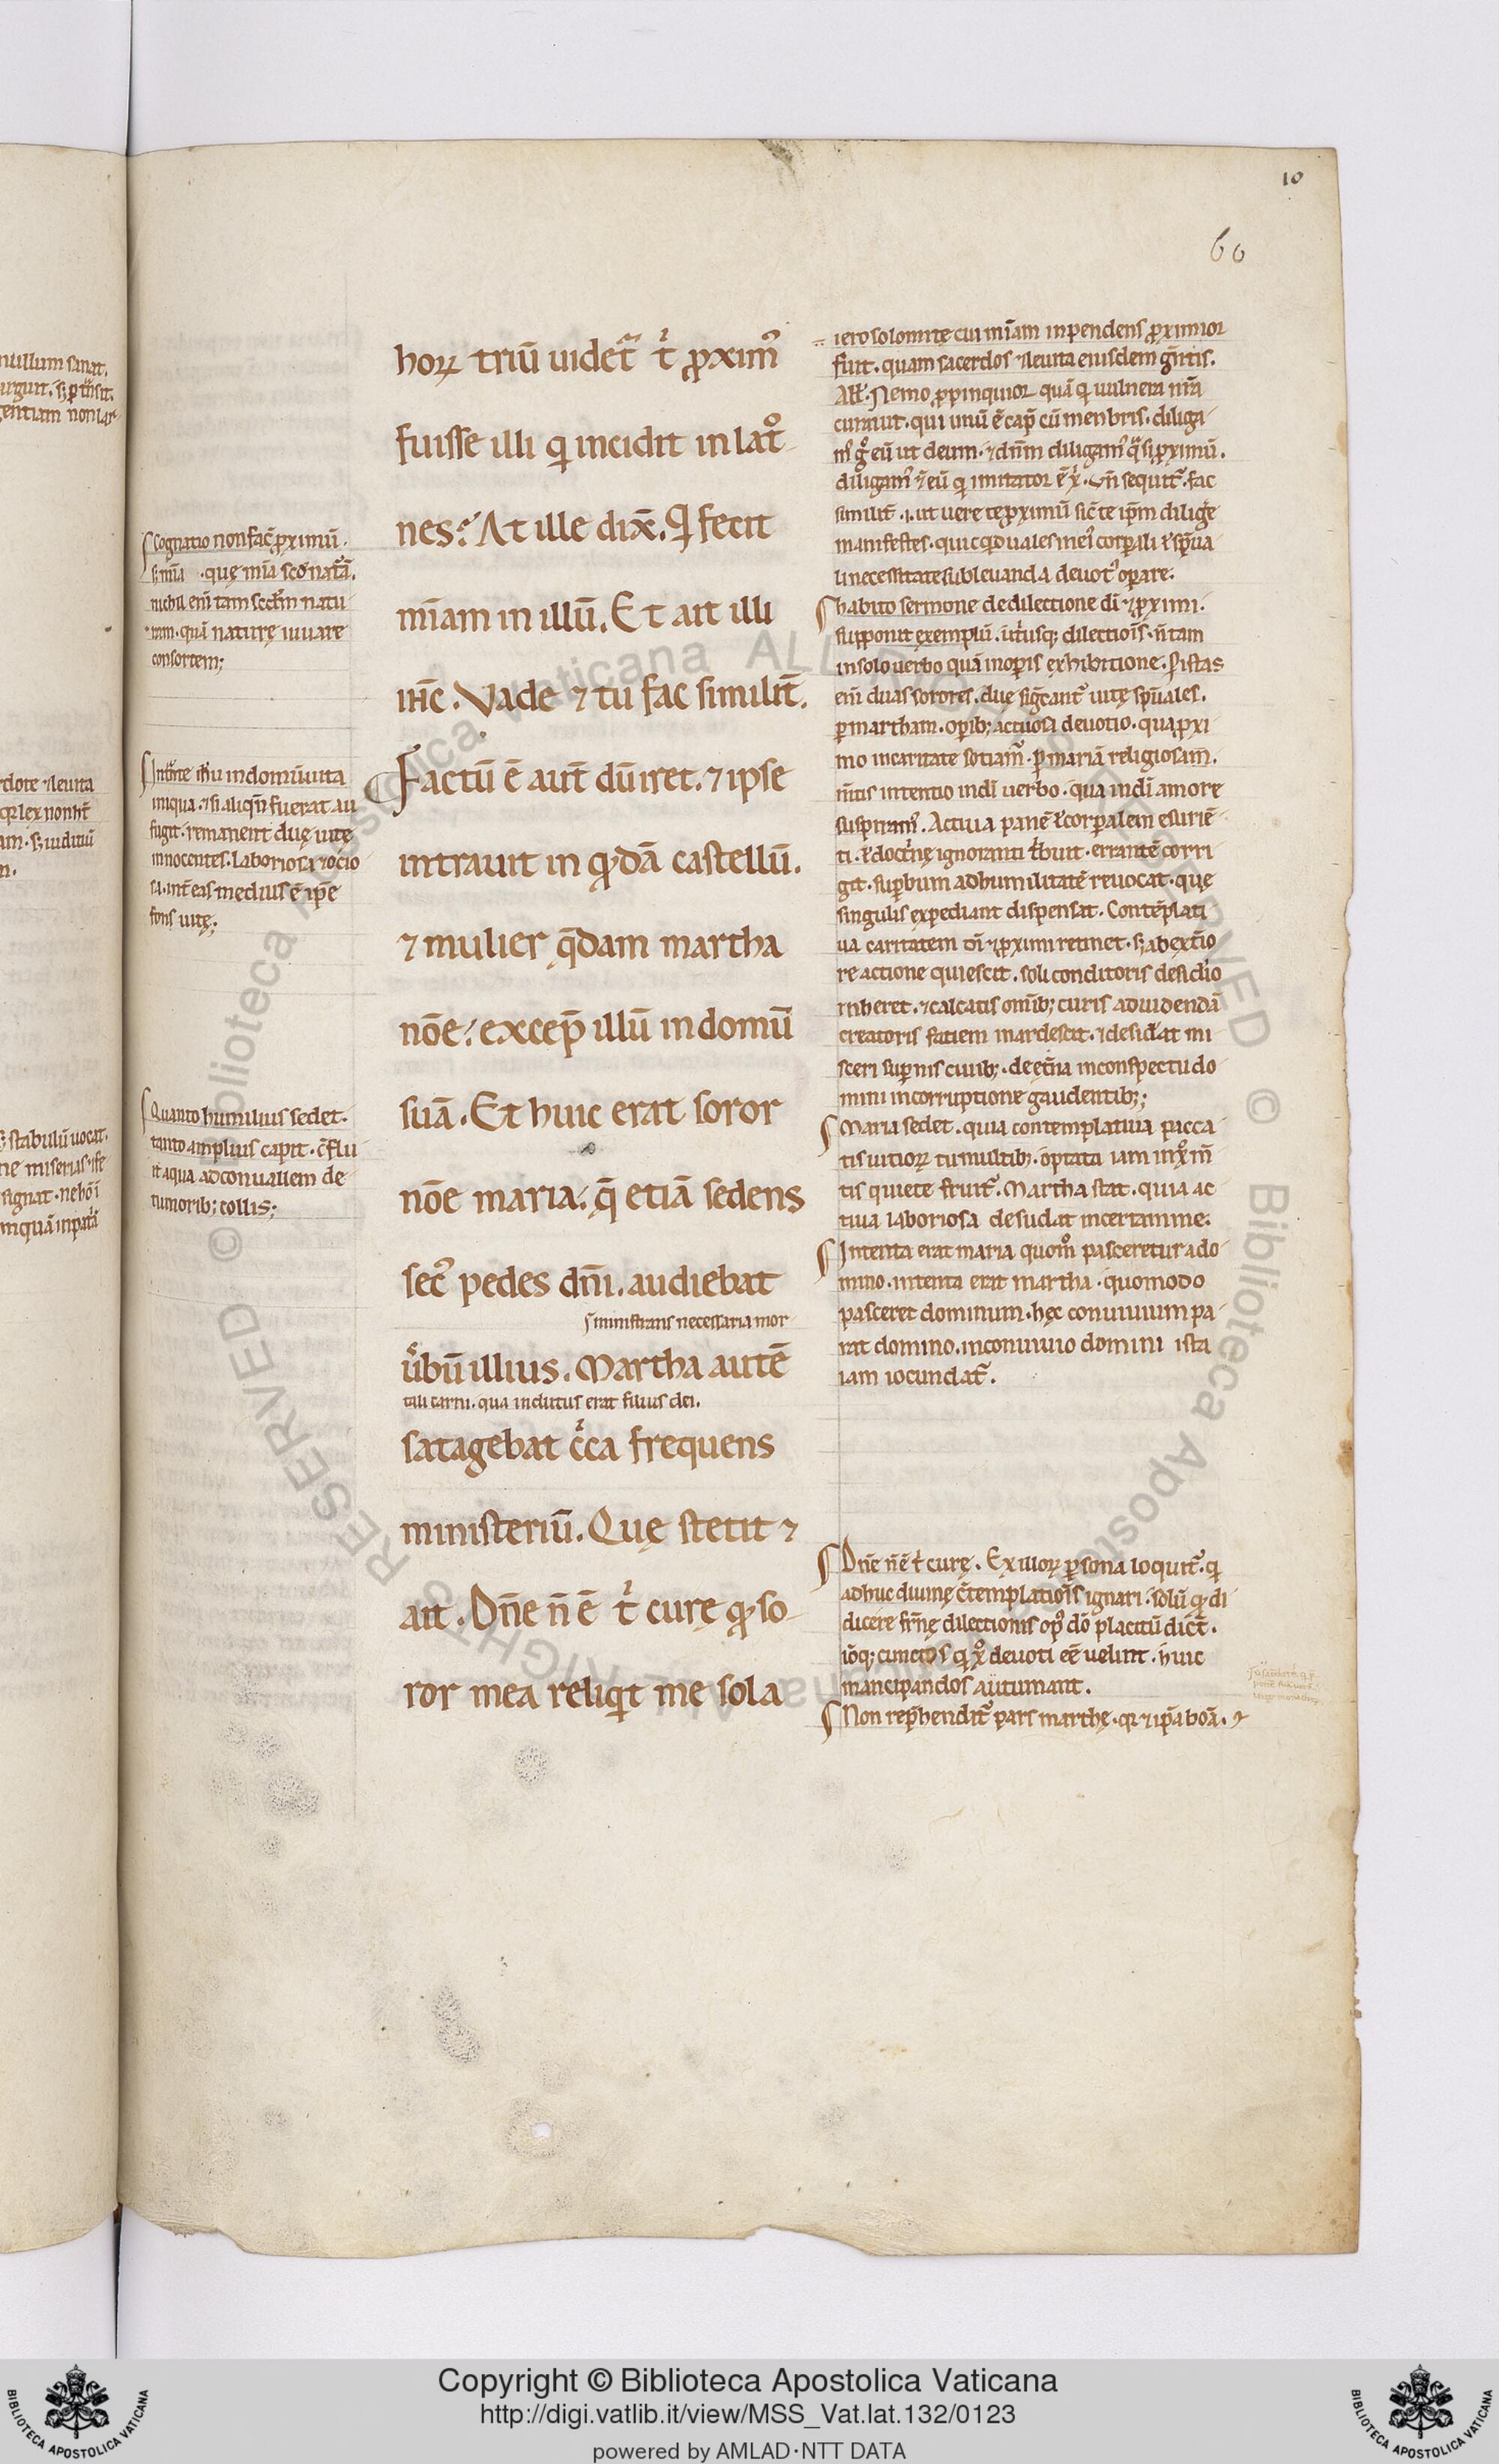 10
60
nullum sanat.
rdote ⁊ leuita
stabulū uocat.
ne miserias
cognatio non fac̄ ꝓximū.
nichil eni᷒ tam scđm natu
ram. quā naturę iuuare
consortem;
Int̄nte ih̄u in domū uita
iniqua. ⁊ si aliqn̄ fuerat au
fugit. remanent duę uitę
innocentes. laboriosa ⁊ ocio
sa. int̄ eas medius ē ip̄e
fons uitę;
Quanto humilius sedet.
tanto amplius capit. c̄flu
it aqua ad conuallem de
tumorib; collis;
hoꝝ triū uidet᷒ t ͥ ꝓxim᷒
fuisse illi q ͥ incidit in lat°
nes? At ille dix̄. Q ͥ fecit
mīam in illū. Et ait illi
ih̄c. Vade ⁊ tu fac similit̄.
Factū ē aut̄ dū iret. ⁊ ipse
intrauit in qͦdā castellū.
⁊ mulier q̄dam martha
nōe. excep̄ illū in domū
suā. Et huic erat soror
nōe maria. q̄ etiā sedens
sec᷒ pedes dn̄i. audiebat
ministrans necessaria mor
ūbū illius. Martha autē
tali carni. qua indutus erat filius dei.
satagebat c ͥca frequens
ministeriū. Quę stetit ⁊
ait. Dn̄e n̄ ē t ͥ curę qͦ so
ror mea reliqͥt me sola
ierosolomitę cui mīam inpendens ꝓximior
fuit. quam sacerdos ⁊ leuita eiusdem gn̄tis.
Nemo ꝓpinquior quā q ͥ uulnera nr̄a
curauit. qui unū ē cap̄ cū menbris. diliga
m᷒ g° eū ut deum. ⁊ dn̄m diligam᷒ q ͣsi ꝓximū.
diligam᷒ ⁊ eū q ͥ imitator ē xͥ. Vn̄ sequit᷒. fac
similit̄. .i. ut uere te ꝓximū sic̄ te ip̄m dilige
manifestes. quicqͥd uales
li necessitate subleuanda deuot᷒ oꝑare.
habito sermone de dilectione dī ⁊ ꝓximi.
supponit exemplū. dilectioīs. n̄ tam
in solo uerbo quā in oꝑis exhibitione. ꝑ istas
eni᷒ duas sorores. due sign̄cant᷒ uitę sp̄uales.
ꝑ martham. oꝑib; actuosa deuotio. qua ꝓxi
mo in caritate sotiam᷒. ꝑ mariā religiosa
m̄tis intentio in dī uerbo. qua in dī amore
suspiram᷒. Actiua panē corꝑalem esurie
ti. doct ͥnę ignoranti t ͥbuit. errantē corri
git. suꝑbum ad humilitatē reuocat. quę
singulis expediant dispensat. Contēplati
ua caritatem dī ⁊ ꝓximi retinet. s; ab exti͛o
re actione quiescit. soli conditoris desid͛io
inheret. ⁊ calcatis omīb; curis ad uidendā
creatoris faciem inardescit. ⁊ desid͛at mi
sceri suꝑnis ciuib; de ęt̄na in conspectu do
mini incorruptione gaudentib;;
Maria sedet. quia contemplatiua pacca
tis uitioꝝ tumultib; optata iam in x° m̄
tis quiete fruit᷒. Martha stat. quia ac
tiua laboriosa desudat in certamine.
Intenta erat maria quom° pasceretur a do
mino. intenta erat martha. quomodo
pasceret dominum. hęc conuiuium pa
rat domino. in conuiuio domini ista
iam iocundat᷒.
Dn̄e n̄ ē t ͥ curę. Ex illoꝝ ꝑsona loquit᷒. q ͥ
adhuc diuinę c̄templatioīs ignari. solū qͦ di
dicere fr̄nę dilectionis op᷒ dō placitū dic̄t.
iōq; cunctos q ͥ x° deuoti eē uelint. huic
mancipandos autumant.
Non rep̄hendit᷒ pars marthę. q ͥ ⁊ ip̄a bōa.
Copyright © Biblioteca Apostolica Vaticana
http://digi.vatlib.it/view/MSS_Vat.lat.132/0123
powered by AMLAD·NTT DATA
BIBLIOTECA APOSTOLICA VATICANA
BIBLIOTECA APOSTOLICA VATICANA